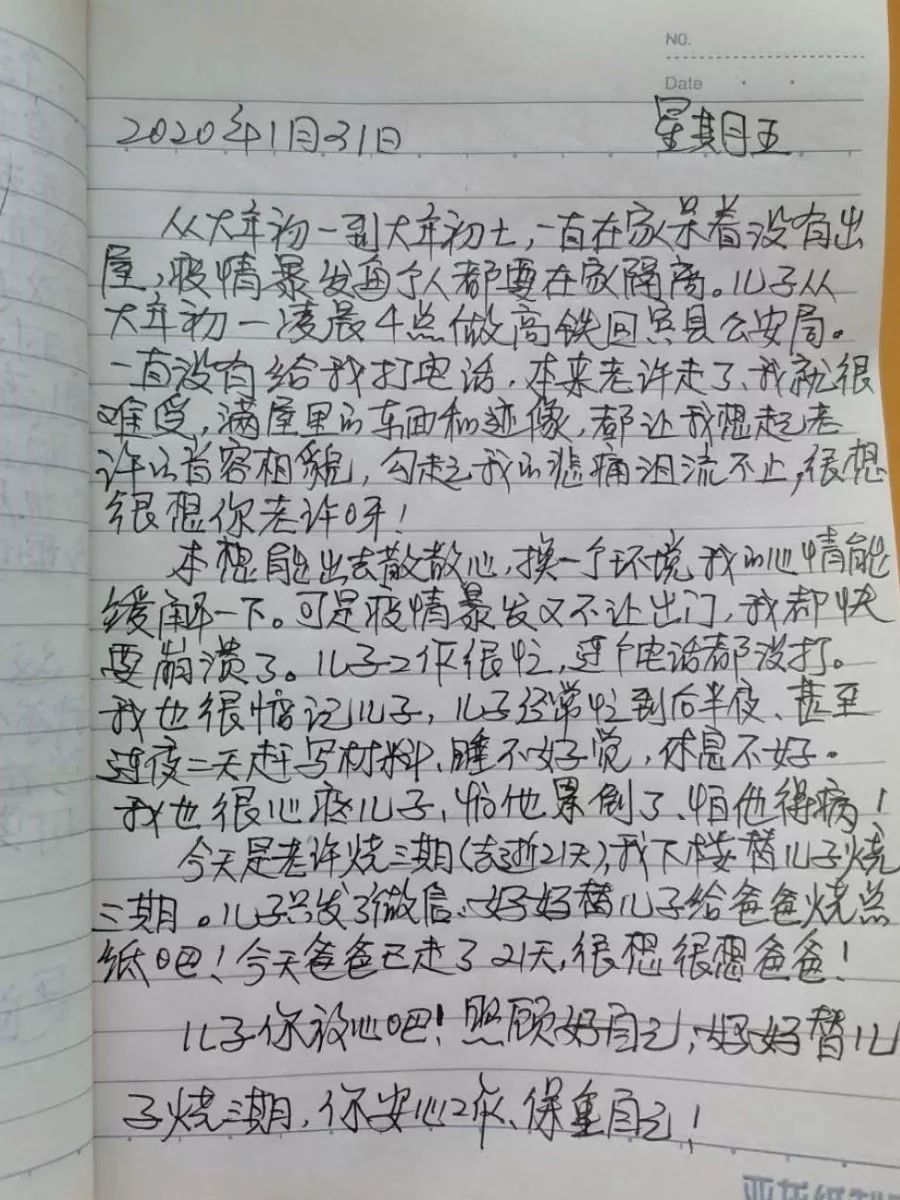 NO.
Date
2020年1月31日 星期五
从大年初一到大年初七,一直在家呆着没有出
屋,疫情暴发每个人都要在家隔离。儿子从
大年初一凌晨4点做高铁回宾县公安局。
一直没有给我打电话,本来老许走了、我就很
难受,满屋里的东西和迹像,都让我想起老
许的首容相貌,勾起我的悲痛泪流不止,很想
很想你老许呀!
本想能出去散散心,换一个环境,我的心情能
缓解一下。可是疫情暴发又不让出门,我都快
要崩溃了。儿子工作很忙,连个电话都没打。
我也很惦记儿子,儿子经常忙到后半夜、甚至
连夜二天赶写材料、睡不好觉,休息不好。
我也很心疼儿子,怕他累倒了、怕他得病!
今天是老许烧三期(去逝21天),我下楼替儿子烧
三期。儿子只发了微信:好好替儿子给爸爸烧点
纸吧!今天爸爸已走了21天,很想很想爸爸!
儿子你放心吧!照顾好自己,好好替儿
子烧三期,你安心工作、保重自己!